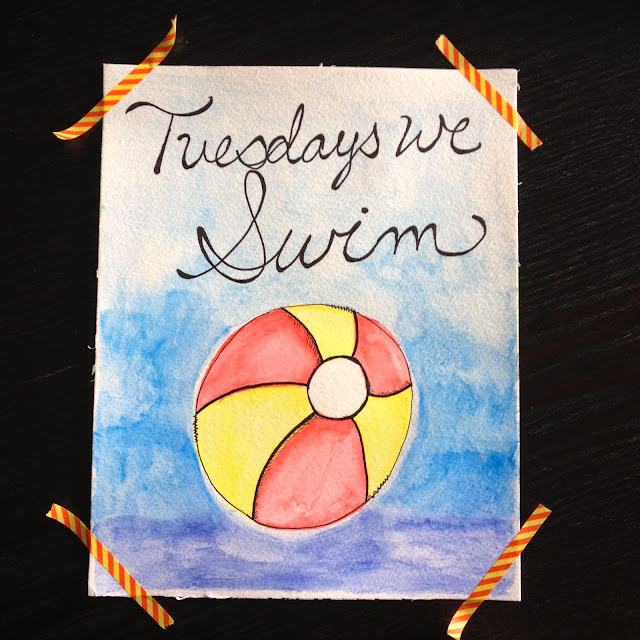 Tuesdays We
Swim